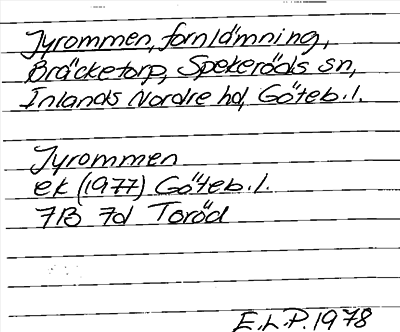 Jyrommen, fornlämning,
Bräcketorp, Spekeröds sn,
Inlands Nordre hd, Göteb. l.
Jyrommen
ek (1977) Göteb. l.
7B 7d Toröd
E.L.P. 1978